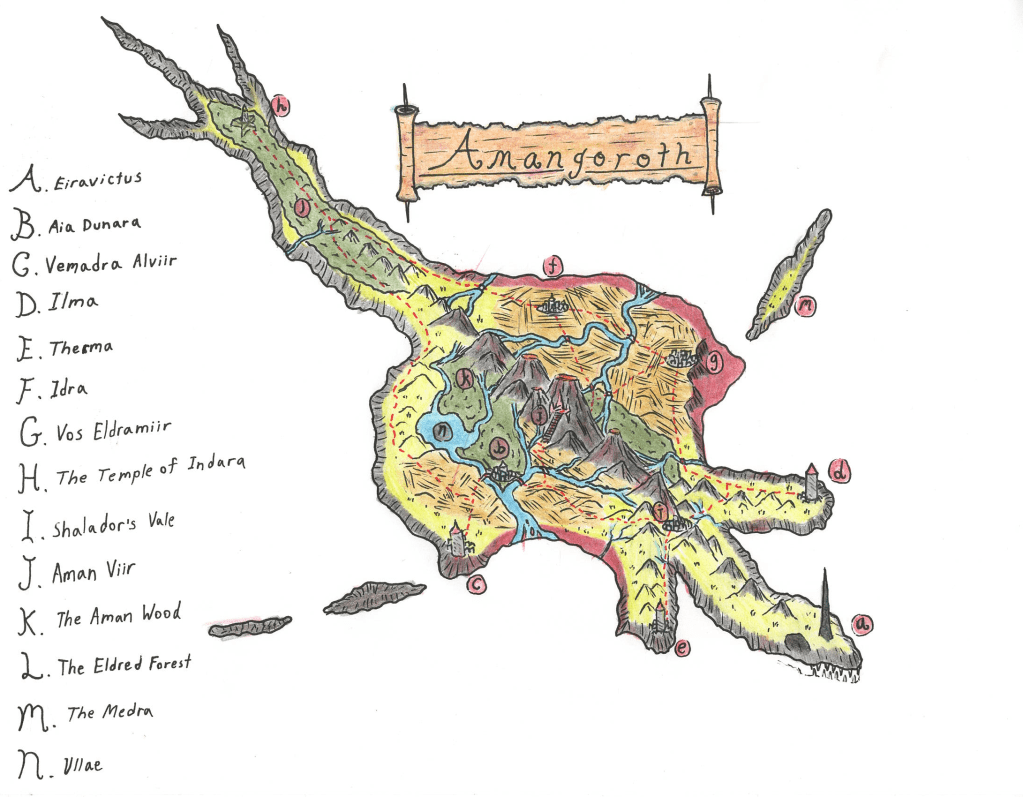 Amangoroth
A. Eiravictus
B. Aia Dunara
C. Vemadra Alviir
D. Ilma
E. Therma
F. Idra
G. Vos Eldramiir
H. The Temple of Indara
I. Shalador's Vale
J. Aman Viir
K. The Aman Wood
L. The Eldred Forest
M. The Medra
N. Ullae
h
l
f
m
g
k
j
n
b
d
i
c
e
a